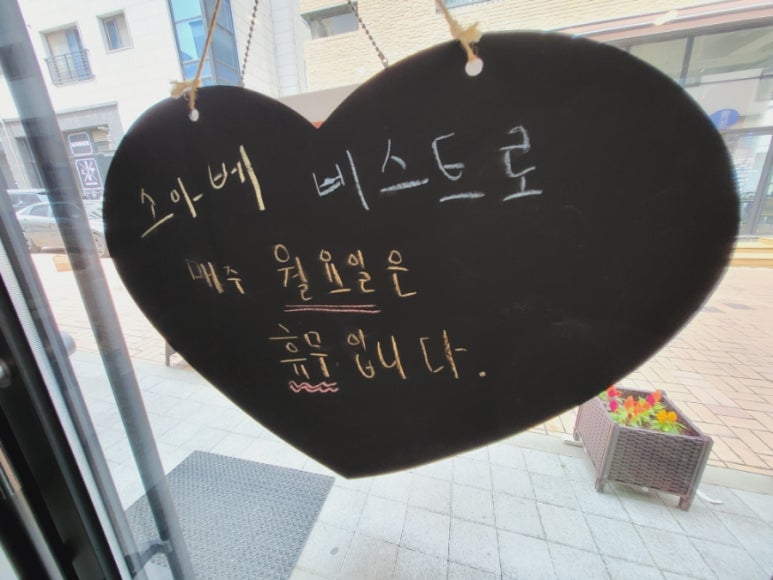 소아베 비스트로
매주 월요일은
휴무입니다.